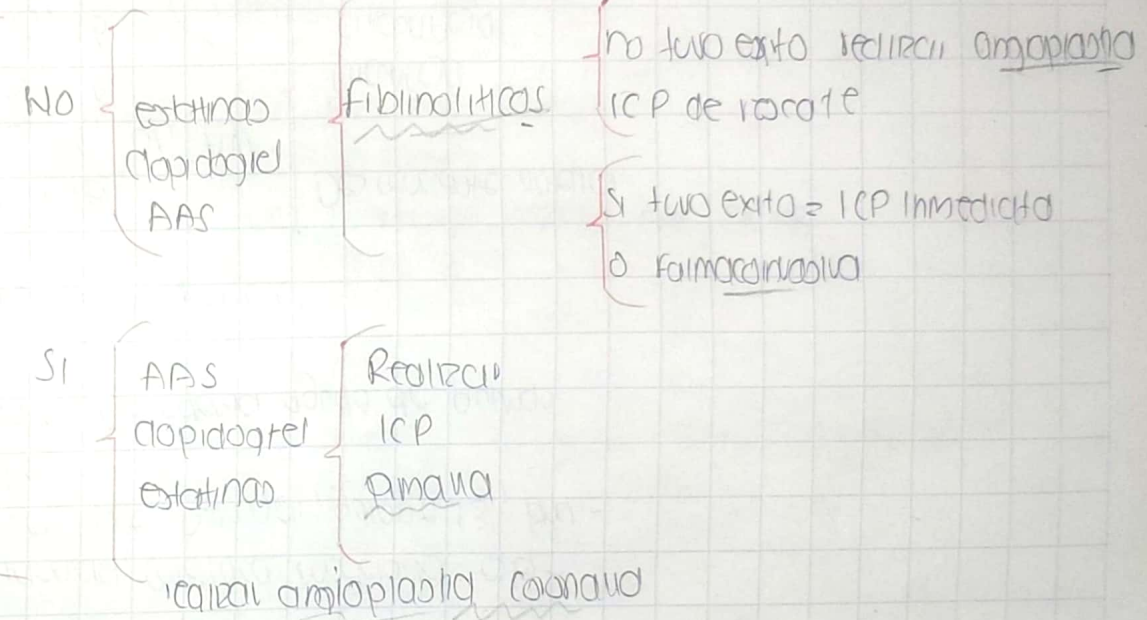 NO
estatinas
Clopidogrel
AAS
fibrinoliticos
no tuvo exito realizar angioplastia
ICP de rescate
Si tuvo exito = ICP inmediata
o Farmacoinvasiva
SI
AAS
clopidogrel
estatinas
Realizar
ICP
primaria
realizar angioplastia coronaria